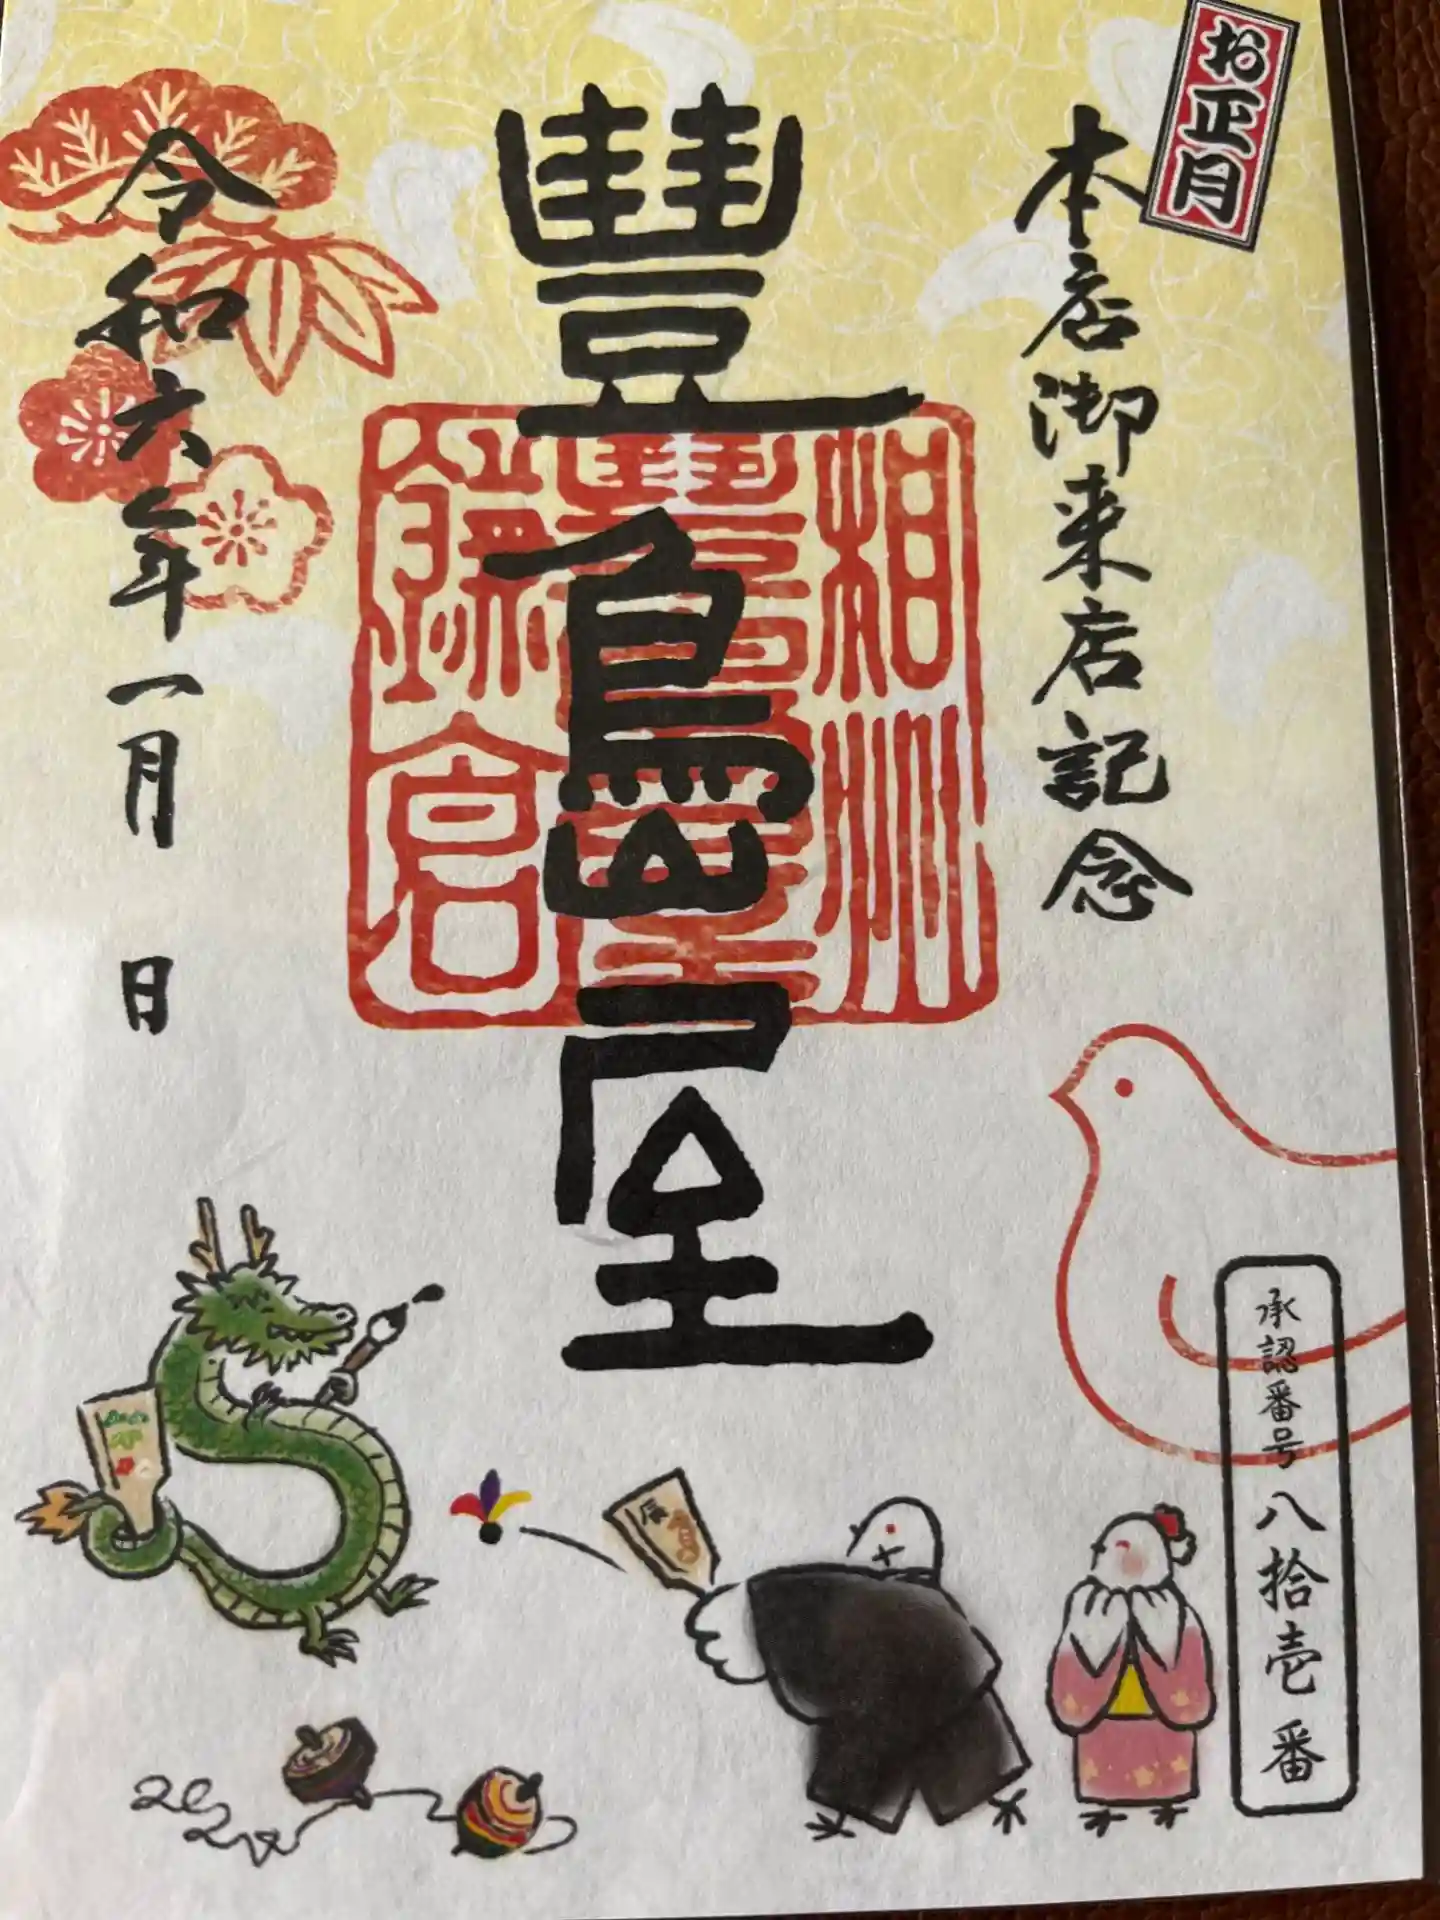 お正月
本店御来店記念
豐島屋
相州
令和六年一月 日
承認番号 八拾壱番
辰
2024